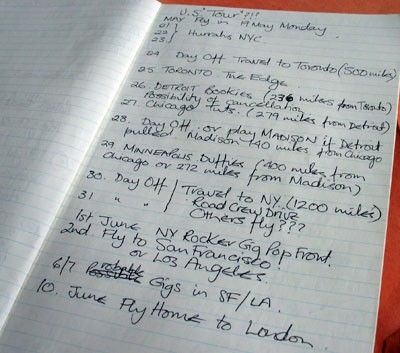 U.S. "Tour"?!?
MAY Fly in 19 May Monday
21
22 } Hurrahs NYC
23
24 Day Off Travel to Toronto (500 miles)
25. TORONTO The Edge.
26. DETROIT Bookies (236 miles from Toronto)
Possibility of cancellation
27. Chicago Tuts. (279 miles from Detroit)
28. Day Off or play MADISON if Detroit
pulled! Madison 140 miles from Chicago
29 MINNEAPOLIS Duffies (400 miles from
Chicago or 272 miles from Madison)
30. Day Off / Travel to NY. (1200 miles)
31 " " / Road Crew Drive
Others fly???
1st June NY Rocker Gig Pop Front.
2nd Fly to San Francisco!
or Los Angeles.
6/7 Probable Gigs in SF/LA.
10. June Fly Home to London